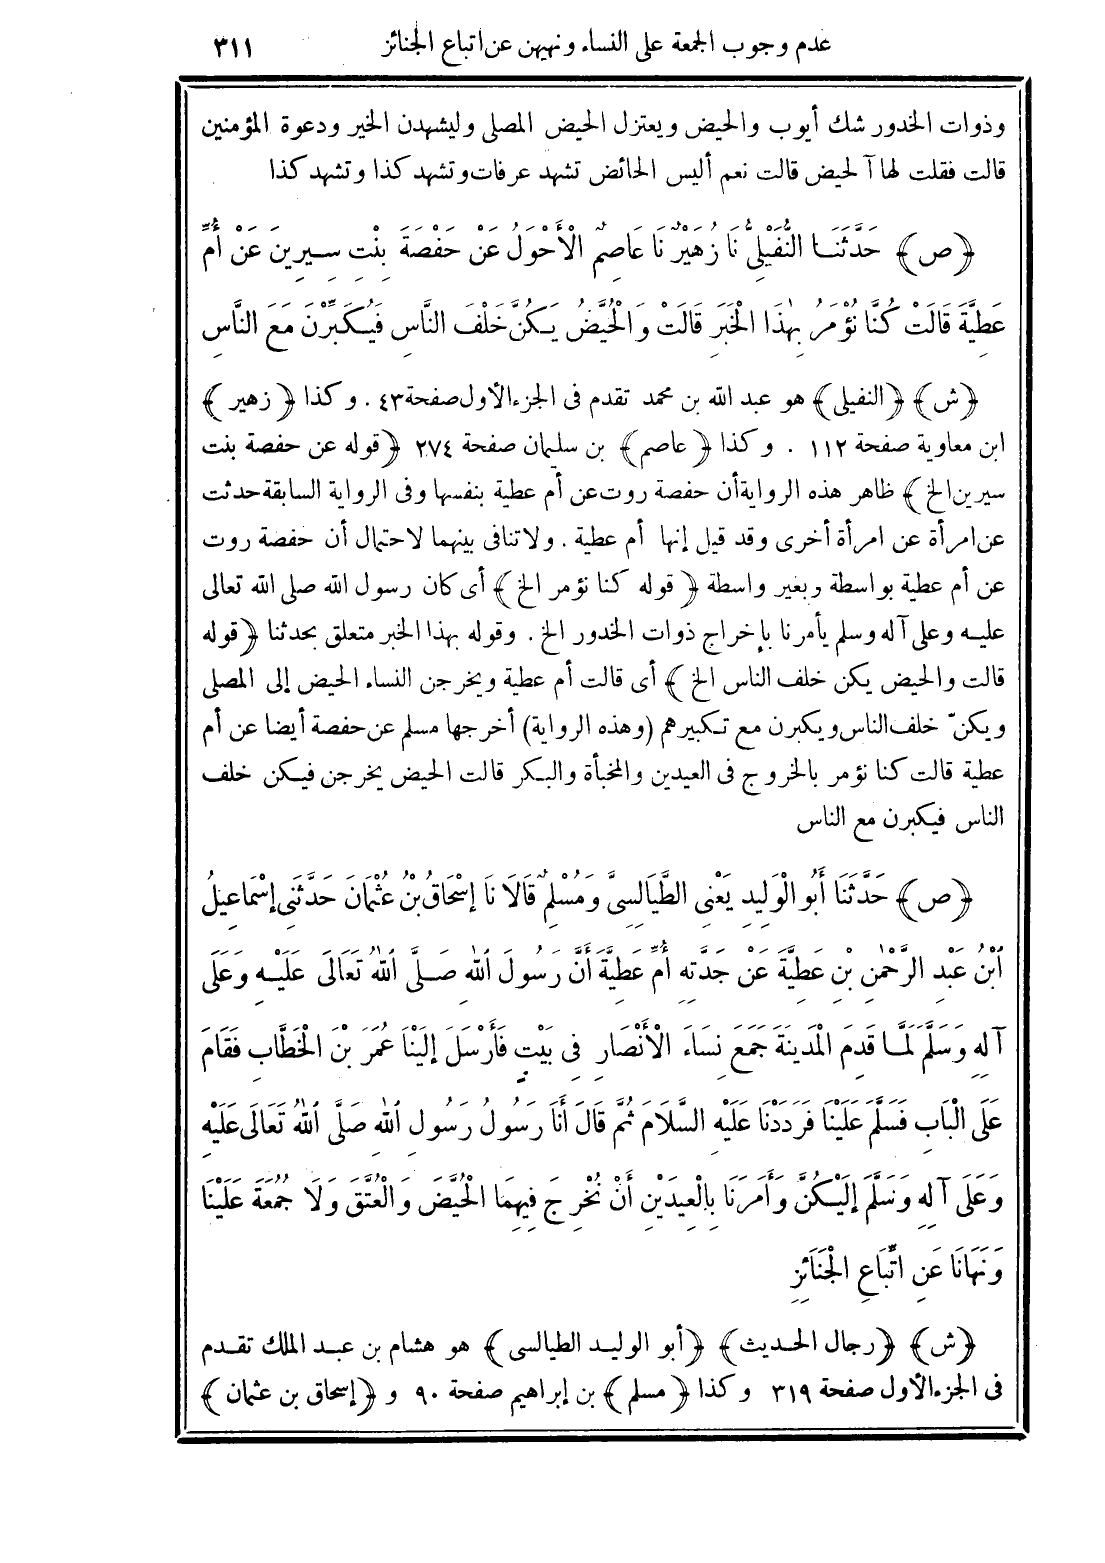 عدم وجوب الجمعة على النساء ونهيهن عن اتباع الجنائز ٣١١
وذوات الخدور شك أيوب والحيض ويعتزل الحيض المصلى وليشهدن الخير ودعوة المؤمنين
قالت فقلت لها آلحيض قالت نعم أليس الحائض تشهد عرفات وتشهد كذا وتشهد كذا
﴿ص﴾ حَدَّثَنَا النُّفَيْلِىُّ نَا زُهَيْرٌ نَا عَاصِمٌ الْأَحْوَلُ عَنْ حَفْصَةَ بِنْتِ سِيرِينَ عَنْ أُمِّ
عَطِيَّةَ قَالَتْ كُنَّا نُؤْمَرُ بِهٰذَا الْخَبَرِ قَالَتْ وَالْحُيَّضُ يَكُنَّ خَلْفَ النَّاسِ فَيُكَبِّرْنَ مَعَ النَّاسِ
﴿ش﴾ ﴿النفيلى﴾ هو عبد الله بن محمد تقدم فى الجزء الأول صفحة ٤٣. وكذا ﴿زهير﴾
ابن معاوية صفحة ١١٢ . وكذا ﴿عاصم﴾ بن سليمان صفحة ٢٧٤ ﴿قوله عن حفصة بنت
سيرين الخ﴾ ظاهر هذه الرواية أن حفصة روت عن أم عطية بنفسها وفى الرواية السابقة حدثت
عن امرأة عن امرأة أخرى وقد قيل إنها أم عطية . ولا تنافى بينهما لاحتمال أن حفصة روت
عن أم عطية بواسطة وبغير واسطة ﴿قوله كنا نؤمر الخ﴾ أى كان رسول الله صلى الله تعالى
عليه وعلى آله وسلم يأمرنا بإخراج ذوات الخدور الخ . وقوله بهذا الخبر متعلق بحدثنا ﴿قوله
قالت والحيض يكن خلف الناس الخ﴾ أى قالت أم عطية ويخرجن النساء الحيض إلى المصلى
ويكنّ خلف الناس ويكبرن مع تكبيرهم (وهذه الرواية) أخرجها مسلم عن حفصة أيضا عن أم
عطية قالت كنا نؤمر بالخروج فى العيدين والمخبأة والبكر قالت الحيض يخرجن فيكن خلف
الناس فيكبرن مع الناس
﴿ص﴾ حَدَّثَنَا أَبُو الْوَلِيدِ يَعْنِى الطَّيَالِسِىَّ وَمُسْلِمٌ قَالَا نَا إِسْحَاقُ بْنُ عُثْمَانَ حَدَّثَنِى إِسْمَاعِيلُ
ابْنُ عَبْدِ الرَّحْمٰنِ بْنِ عَطِيَّةَ عَنْ جَدَّتِهِ أُمِّ عَطِيَّةَ أَنَّ رَسُولَ اللهِ صَلَّى اللهُ تَعَالَى عَلَيْهِ وَعَلَى
آلِهِ وَسَلَّمَ لَمَّا قَدِمَ الْمَدِينَةَ جَمَعَ نِسَاءَ الْأَنْصَارِ فِى بَيْتٍ فَأَرْسَلَ إِلَيْنَا عُمَرَ بْنَ الْخَطَّابِ فَقَامَ
عَلَى الْبَابِ فَسَلَّمَ عَلَيْنَا فَرَدَدْنَا عَلَيْهِ السَّلَامَ ثُمَّ قَالَ أَنَا رَسُولُ رَسُولِ اللهِ صَلَّى اللهُ تَعَالَى عَلَيْهِ
وَعَلَى آلِهِ وَسَلَّمَ إِلَيْكُنَّ وَأَمَرَنَا بِالْعِيدَيْنِ أَنْ نُخْرِجَ فِيهِمَا الْحُيَّضَ وَالْعُتَّقَ وَلَا جُمُعَةَ عَلَيْنَا
وَنَهَانَا عَنِ اتِّبَاعِ الْجَنَائِزِ
﴿ش﴾ ﴿رجال الحديث﴾ ﴿أبو الوليد الطيالسى﴾ هو هشام بن عبد الملك تقدم
فى الجزء الأول صفحة ٣١٩ وكذا ﴿مسلم﴾ بن إبراهيم صفحة ٩٠ و ﴿إسحاق بن عثمان﴾